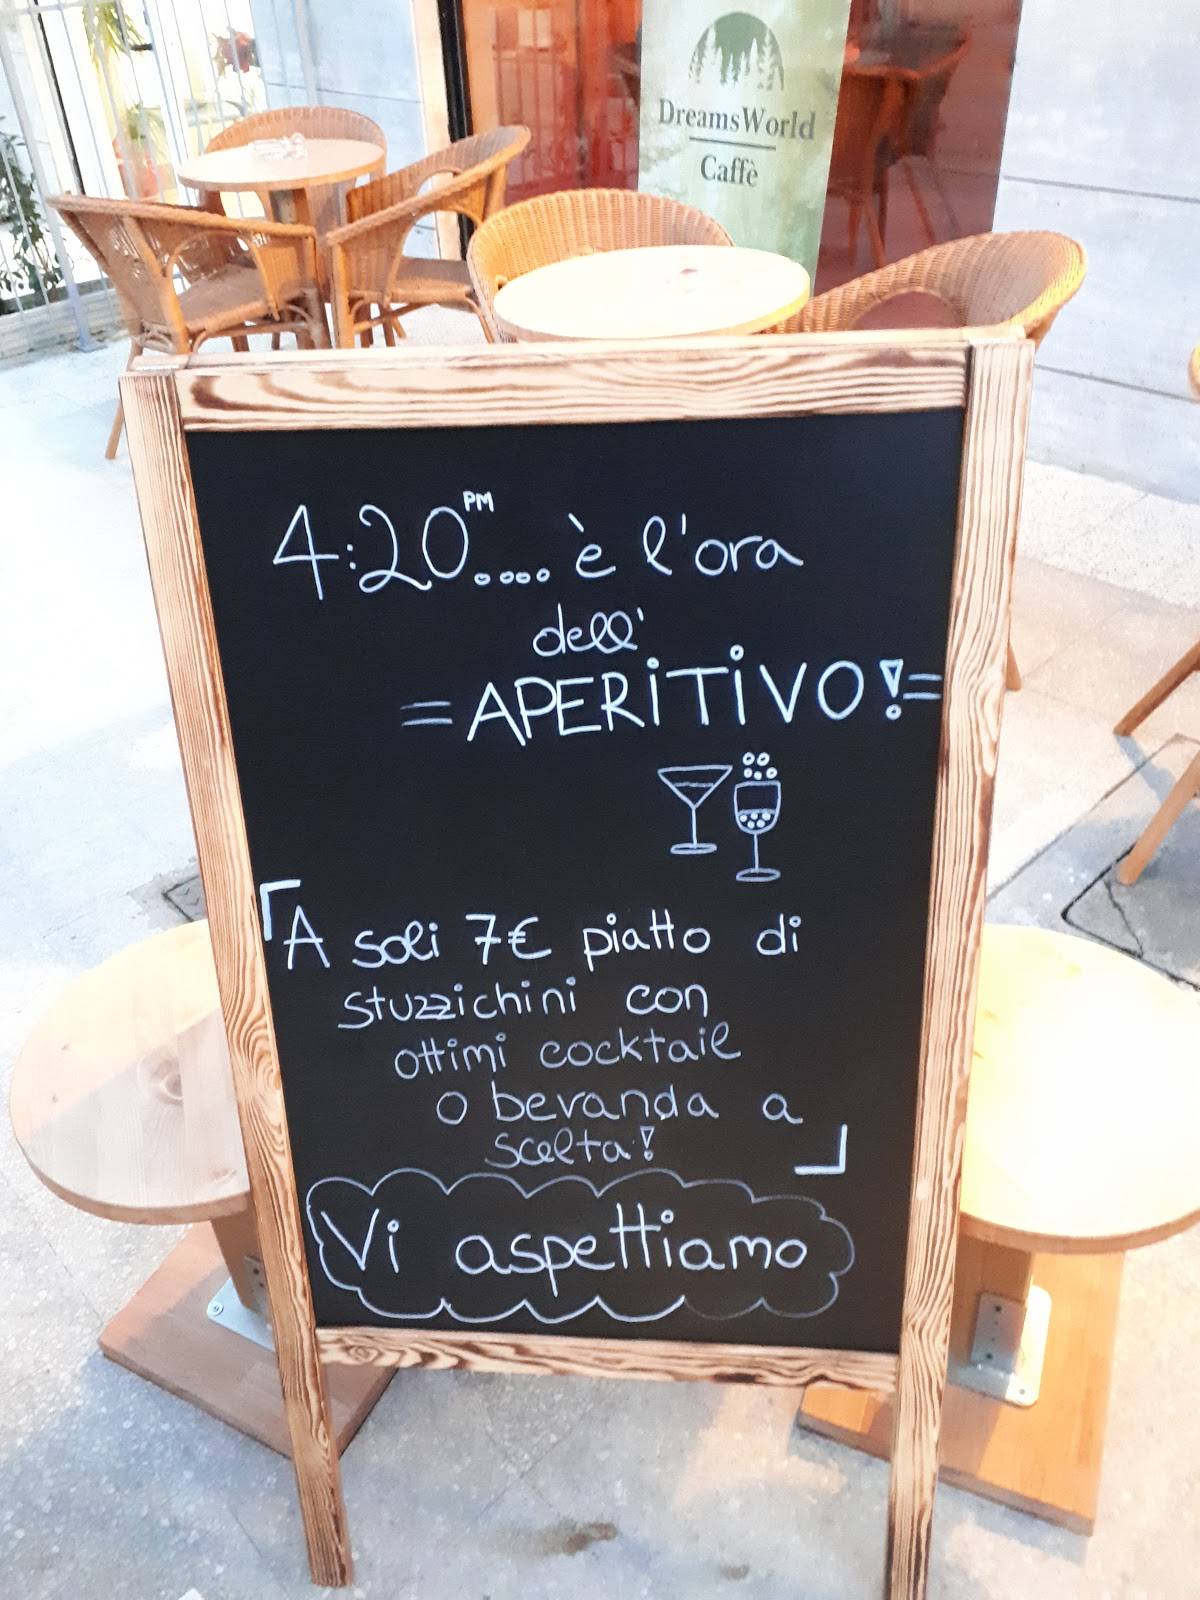 DreamsWorld
Caffè
4:20PM.... è l'ora
dell'
=APERiTiVO!=
A soli 7€ piatto di
stuzzichini con
ottimi cocktail
o bevanda a
scelta!
Vi aspettiamo